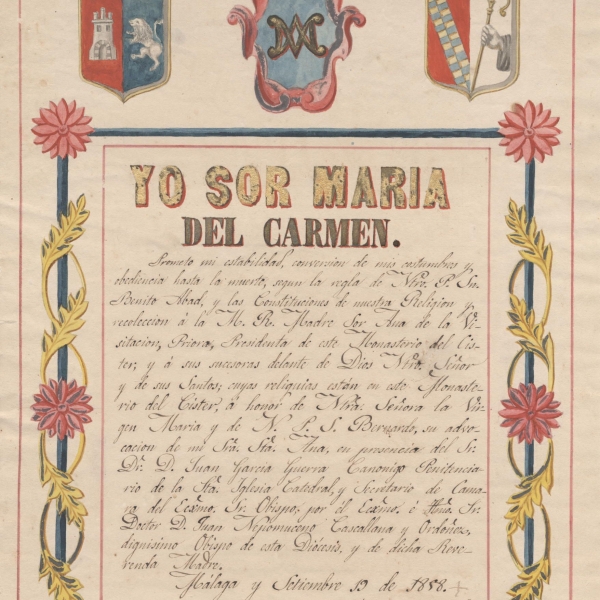 YO SOR MARIA
DEL CARMEN.
Prometo mi estabilidad, conversion de mis costumbres y
obediencia hasta la muerte, segun la regla de Ntro. P. Sn.
Benito Abad, y las Constituciones de nuestra Religion y
recoleccion á la M. R. Madre Sor Ana de la Vi-
sitacion, Priora, Presidenta de este Monasterio del Cis-
ter, y á sus sucesoras delante de Dios Ntro. Señor
y de sus Santos; cuyas reliquias están en este Monaste-
rio del Cister, á honor de Ntra. Señora la Vir-
gen Maria y de N. P. S. Bernardo, su advo-
cacion de mi Sra. Sta. Ana, en presencia del Sr.
Dr. D. Juan Garcia Guerra Canonigo Penitencia-
rio de la Sta. Iglesia Catedral, y Secretario de Cama-
ra del Ecxmo. Sr. Obispo; por el Ecxmo. é Iltmo. Sr.
Doctor D. Juan Nepomuceno Cascallana y Ordoñez,
dignisimo Obispo de esta Diócesis, y de dicha Reve-
renda Madre.
Málaga y Setiembre 19 de 1858.